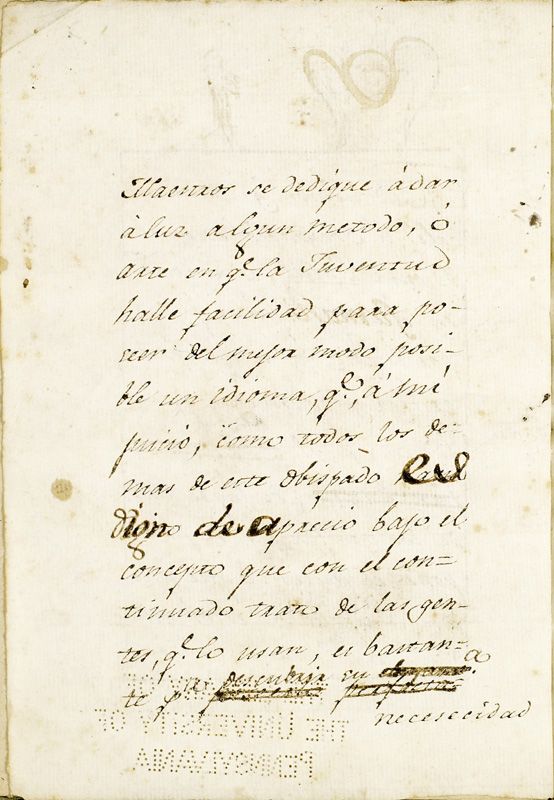 Maestros se dedique à dar
à luz algun metodo, ó
arte en q.e la Juventud
halle facilidad para po-
seer del mejor modo posi-
ble un idioma, q.e, à mi
juicio, como todos los de-
mas de este obispado es
digno de aprecio bajo el
concepto que con el con-
tinuado trato de las gen-
tes, q.e lo usan, es bastan-
te p.a descubrir su
necesecidad
THE UNIVERSITY OF
PENNSYLVANIA